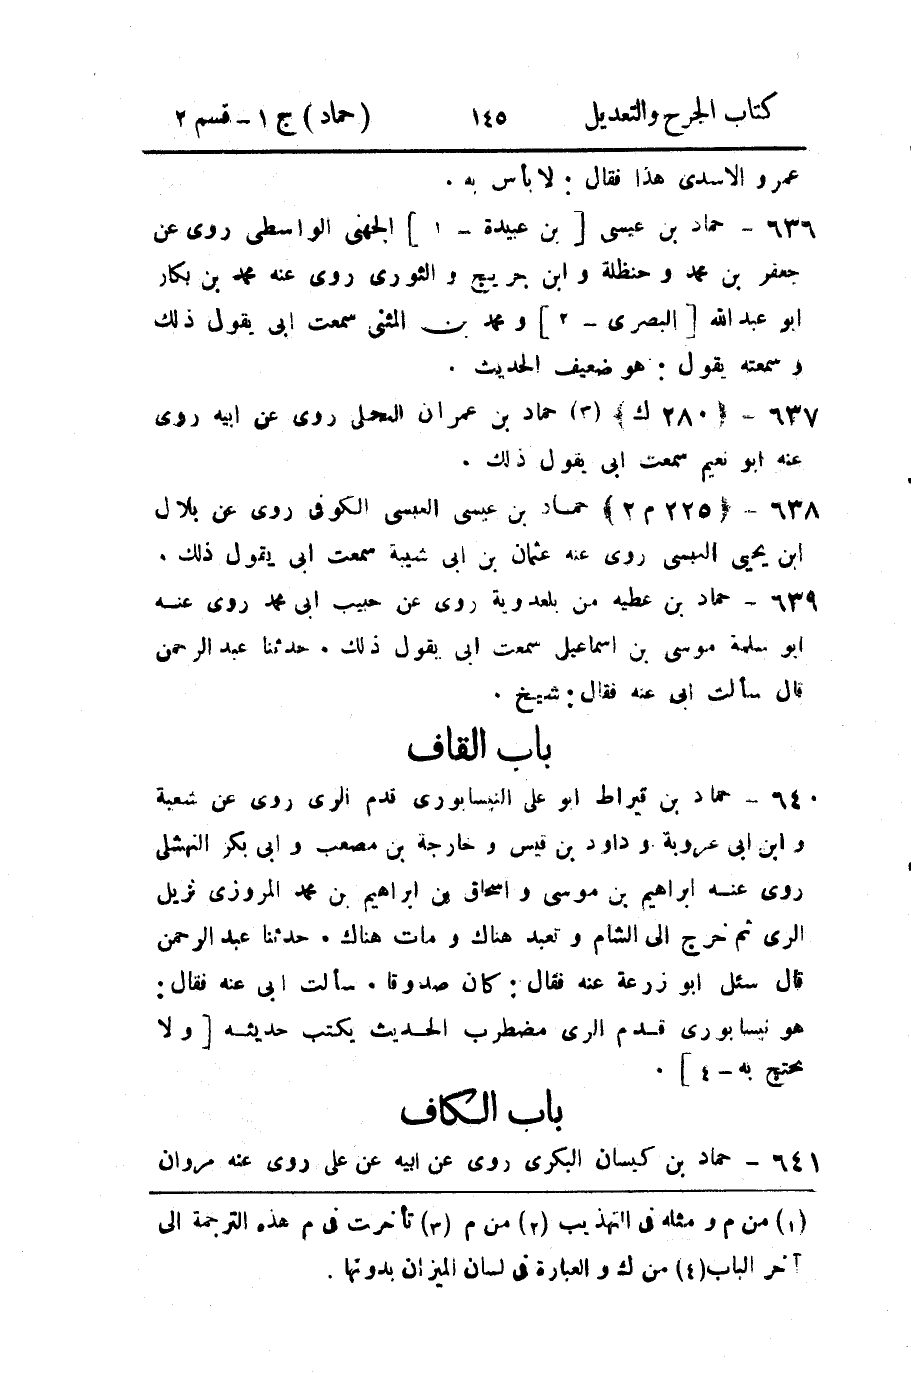 كتاب الجرح والتعديل ١٤٥ (حماد) ج ١ - قسم ٢
عمرو الاسدى هذا فقال : لا بأس به .
٦٣٦ - حماد بن عيسى [ بن عبيدة - ١ ] الجهنى الواسطى روى عن
جعفر بن محمد و حنظلة و ابن جريج و الثورى روى عنه محمد بن بكار
ابو عبد الله [ البصرى - ٢ ] و محمد بن المثنى سمعت ابى يقول ذلك
و سمعته يقول : هو ضعيف الحديث .
٦٣٧ - ﴿٢٨٠ ك﴾ (٣) حماد بن عمران روى عن ابيه روى
عنه ابو نعيم سمعت ابى يقول ذلك .
٦٣٨ - ﴿٢٢٥ م ٢﴾ حماد بن عيسى العبسى الكوفى روى عن بلال
ابن يحيى العبسى روى عنه عثمان بن ابى شيبة سمعت ابى يقول ذلك .
٦٣٩ - حماد بن عطيه من بلعدوية روى عن حبيب ابى محمد روى عنه
ابو سلمة موسى بن اسماعيل سمعت ابى يقول ذلك . حدثنا عبد الرحمن
قال سألت ابى عنه فقال : شيخ .
باب القاف
٦٤٠ - حماد بن قيراط ابو على النيسابورى قدم الرى روى عن شعبة
و ابن ابى عروبة و داود بن قيس و خارجة بن مصعب و ابى بكر النهشلى
روى عنه ابراهيم بن موسى و اسحاق بن ابراهيم بن محمد المروزى نزيل
الرى ثم خرج الى الشام و تعبد هناك و مات هناك . حدثنا عبد الرحمن
قال سئل ابو زرعة عنه فقال : كان صدوقا . سألت ابى عنه فقال :
هو نيسابورى قدم الرى مضطرب الحديث يكتب حديثه [ و لا
يحتج به - ٤ ] .
باب الكاف
٦٤١ - حماد بن كيسان البكرى روى عن ابيه عن على روى عنه مروان
(١) من م و مثله فى التهذيب (٢) من م (٣) تأخرت فى م هذه الترجمة الى
آخر الباب (٤) من ك و العبارة فى لسان الميزان بدونها .